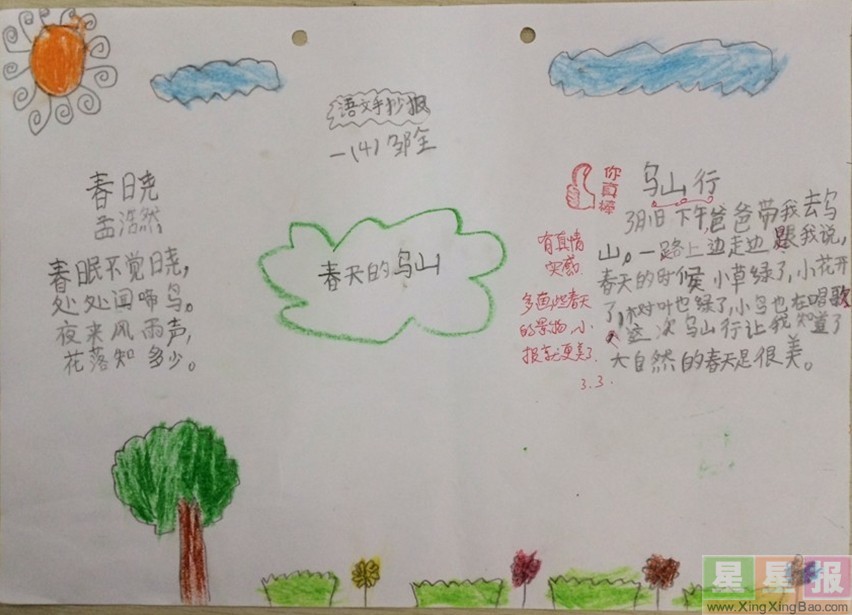 语文手抄报
一(4)邹全
春晓
孟浩然
春眠不觉晓,
处处闻啼鸟。
夜来风雨声,
花落知多少。
春天的乌山
你真棒
乌山行
3月1日下午,爸爸带我去乌
山。一路上边走边跟我说,
春天的时候小草绿了,小花开
了,树叶也绿了,小鸟也在唱歌
。这次乌山行让我知道了
大自然的春天是很美。
有真情
实感
多画些春天
的景物,小
报就更美了
3.3.
星星报
www.XingXingBao.com